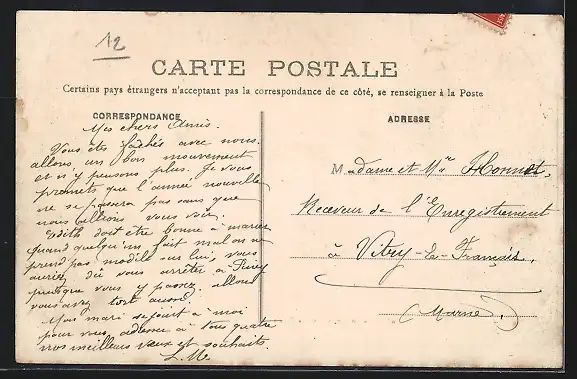 12
CARTE POSTALE
Certains pays étrangers n'acceptant pas la correspondance de ce côté, se renseigner à la Poste
CORRESPONDANCE
Mes chers Amis.
Vous êtes fâchés avec nous.
allons un bon mouvement
et n'y pensons plus. Je vous
promets que l'année nouvelle
ne se passera pas sans que
nous allions vous voir.
Edith doit être bonne à marier
quand quelqu'un fait mal on ne
prend pas modèle sur lui, vous
auriez dû vous arrêter à
puisque vous y passez. allons
vous avez tort aussi.
Mon mari se joint à moi
pour vous adresser à tous quatre
nos meilleurs vœux et souhaits.
L. M.
ADRESSE
Madame et Mr Honnet,
Receveur de l'Enregistrement
à Vitry-le-Français,
(Marne).